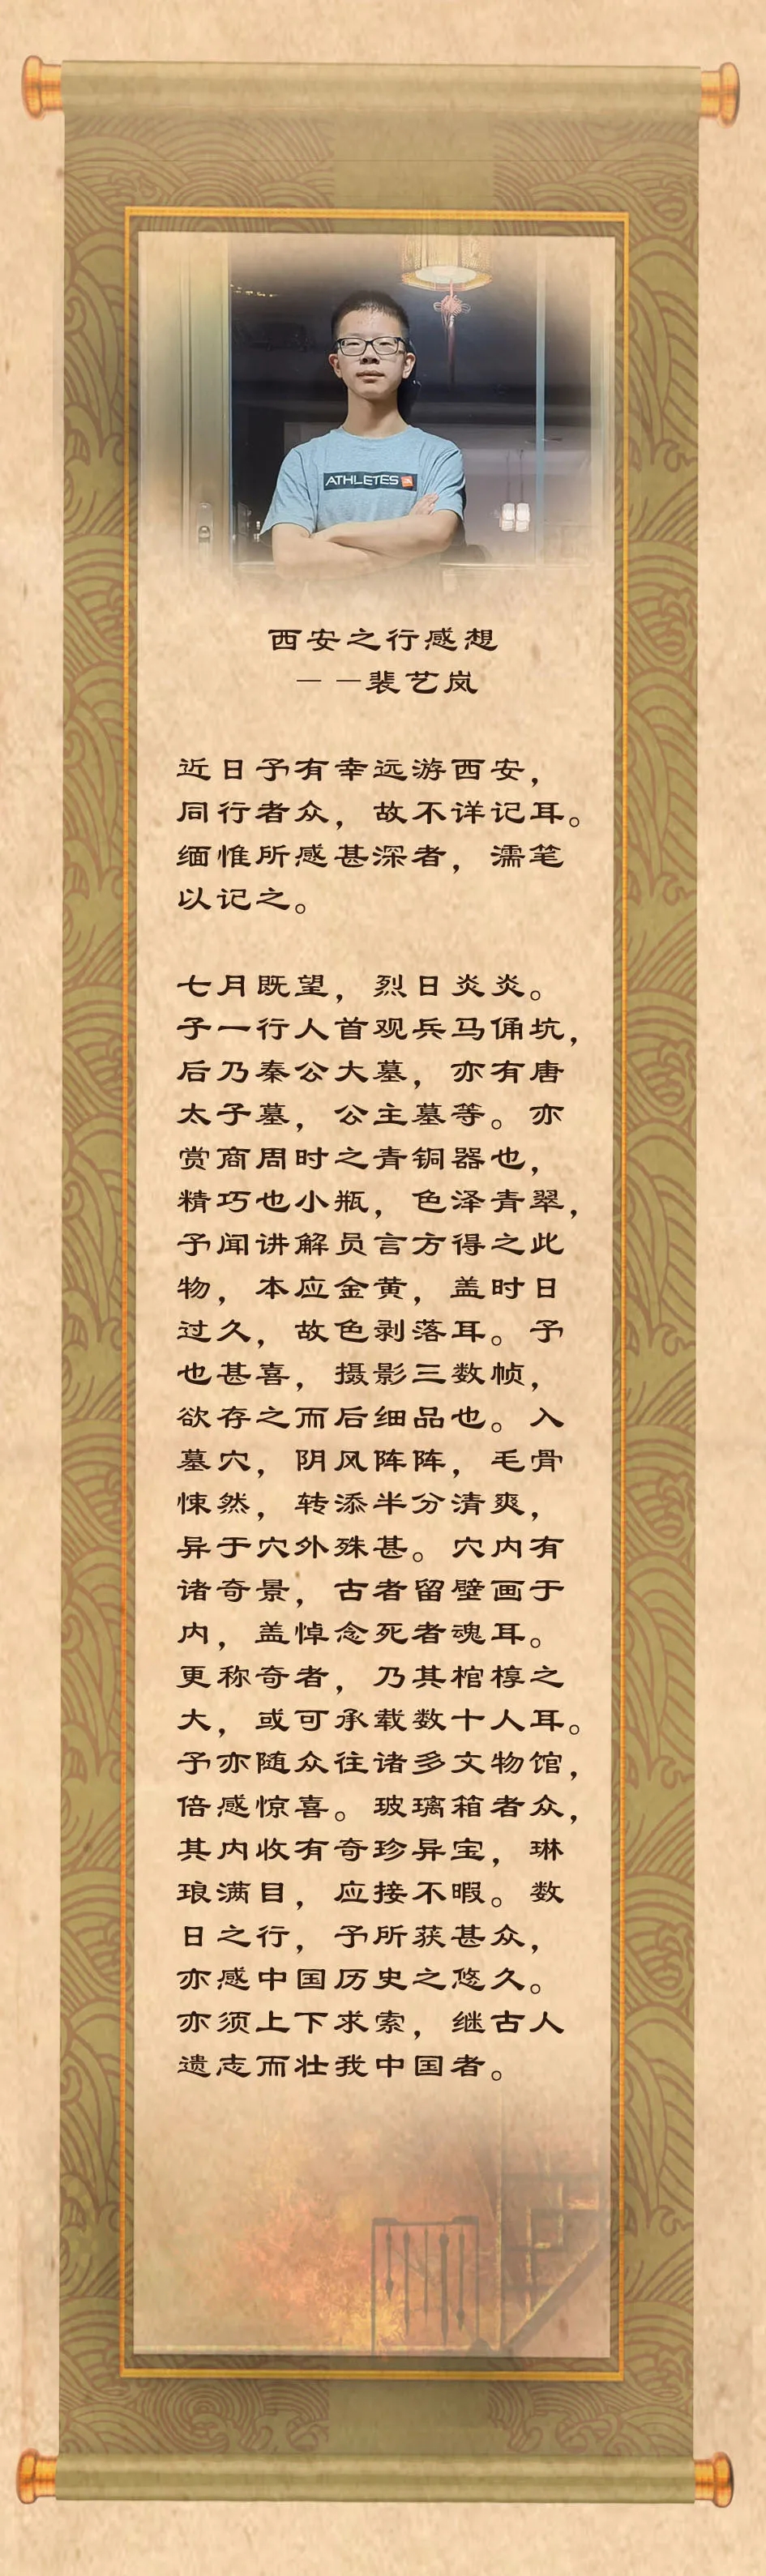 ATHLETES
西安之行感想
— —裴艺岚
近日予有幸远游西安，
同行者众，故不详记耳。
缅惟所感甚深者，濡笔
以记之。
七月既望，烈日炎炎。
予一行人首观兵马俑坑，
后乃秦公大墓，亦有唐
太子墓，公主墓等。亦
赏商周时之青铜器也，
精巧也小瓶，色泽青翠，
予闻讲解员言方得之此
物，本应金黄，盖时日
过久，故色剥落耳。予
也甚喜，摄影三数帧，
欲存之而后细品也。入
墓穴，阴风阵阵，毛骨
悚然，转添半分清爽，
异于穴外殊甚。穴内有
诸奇景，古者留壁画于
内，盖悼念死者魂耳。
更称奇者，乃其棺椁之
大，或可承载数十人耳。
予亦随众往诸多文物馆，
倍感惊喜。玻璃箱者众，
其内收有奇珍异宝，琳
琅满目，应接不暇。数
日之行，予所获甚众，
亦感中国历史之悠久。
亦须上下求索，继古人
遗志而壮我中国者。